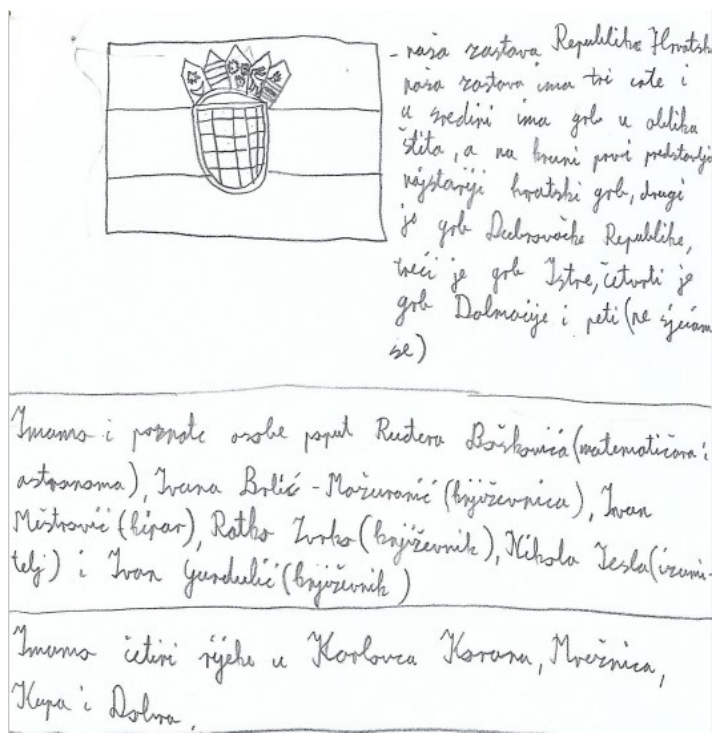 - naša zastava Republike Hrvatske
naša zastava ima tri crte i
u sredini ima grb u obliku
štita, a na kruni prvi predstavlja
najstariji hrvatski grb, drugi
je grb Dubrovačke Republike,
treći je grb Istre, četvrti je
grb Dalmacije i peti (ne sjećam
se)
Imamo i poznate osobe poput Ruđera Boškovića (matematičara i
astronoma), Ivana Brlić - Mažuranić (književnica), Ivan
Meštrović (kipar), Ratko Zvrko (književnik), Nikola Tesla (izumi-
telj) i Ivan Gundulić (književnik)
Imamo četiri rijeke u Karlovca Korana, Mrežnica,
Kupa i Dobra.